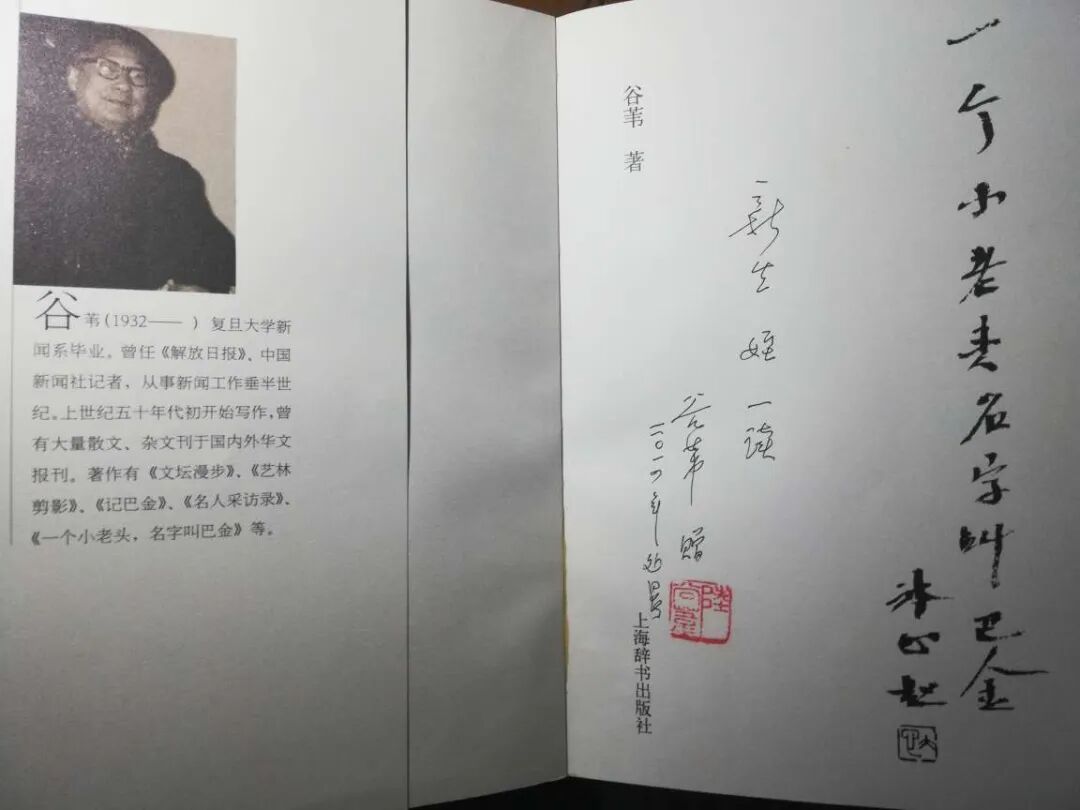 谷苇(1932—— ) 复旦大学新
闻系毕业。曾任《解放日报》、中国
新闻社记者，从事新闻工作垂半世
纪。上世纪五十年代初开始写作，曾
有大量散文、杂文刊于国内外华文
报刊。著作有《文坛漫步》、《艺林
剪影》、《记巴金》、《名人采访录》、
《一个小老头，名字叫巴金》等。
一个小老头名字叫巴金
冰心题
新生姪一读
谷苇赠
二〇一四年
谷苇 著
上海辞书出版社